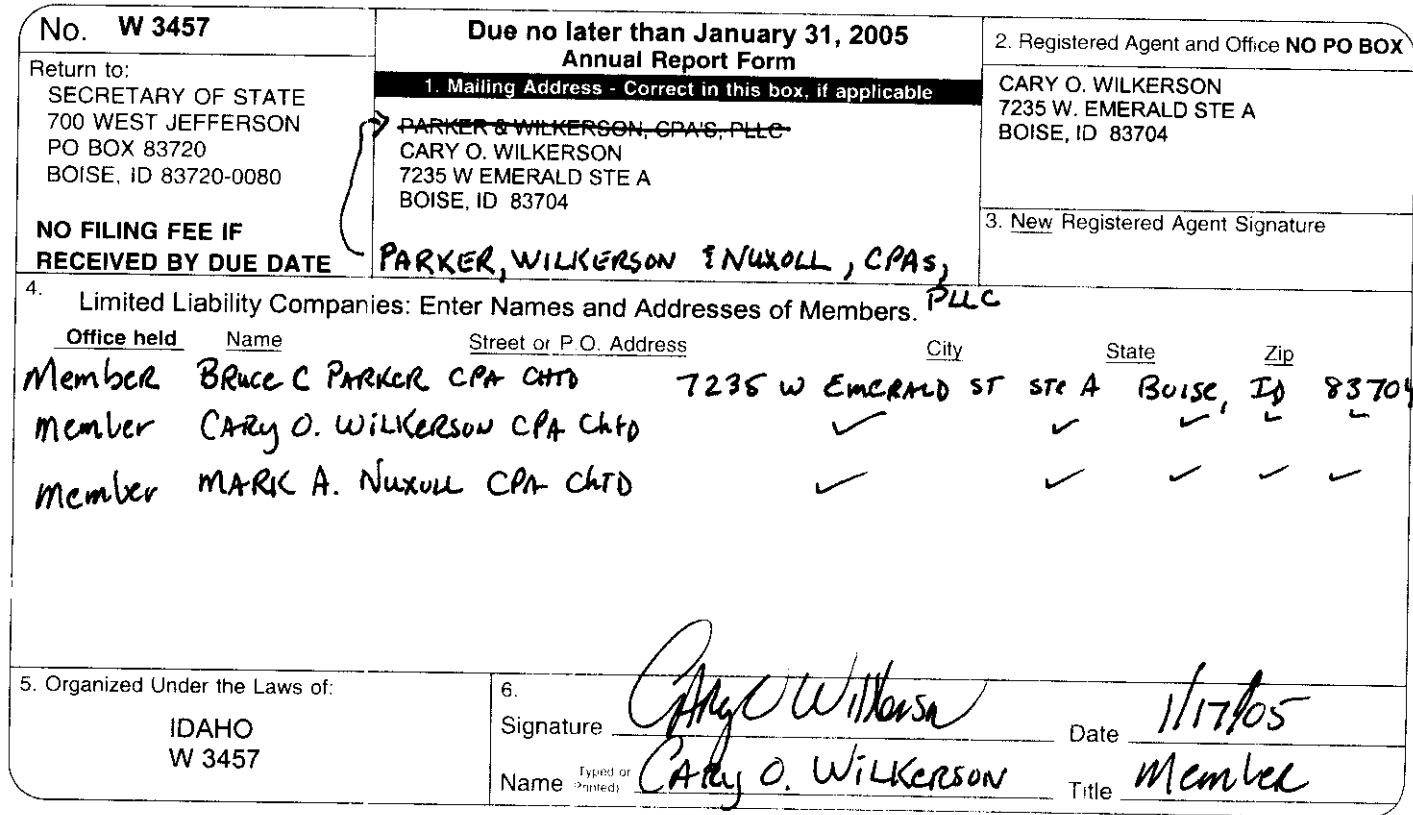 No. W 3457
Return to:
SECRETARY OF STATE
700 WEST JEFFERSON
PO BOX 83720
BOISE, ID 83720-0080
NO FILING FEE IF
RECEIVED BY DUE DATE
Due no later than January 31, 2005
Annual Report Form
1. Mailing Address - Correct in this box, if applicable
PARKER & WILKERSON, CPA'S, PLLC
CARY O. WILKERSON
7235 W EMERALD STE A
BOISE, ID 83704
PARKER, WILKERSON & NUXOLL, CPAS,
PLLC
2. Registered Agent and Office NO PO BOX
CARY O. WILKERSON
7235 W. EMERALD STE A
BOISE, ID 83704
3. New Registered Agent Signature
4. Limited Liability Companies: Enter Names and Addresses of Members.
Office held Name Street or P.O. Address City State Zip
Member BRUCE C PARKER CPA CHTD 7235 W EMERALD ST STE A BOISE, ID 83704
Member CARY O. WILKERSON CPA CHTD ✓ ✓ ✓ ✓ ✓
Member MARK A. NUXOLL CPA CHTD ✓ ✓ ✓ ✓ ✓
5. Organized Under the Laws of:
IDAHO
W 3457
6.
Signature Cary O Wilkerson Date 1/17/05
Name (Typed or Printed) CARY O. WILKERSON Title Member